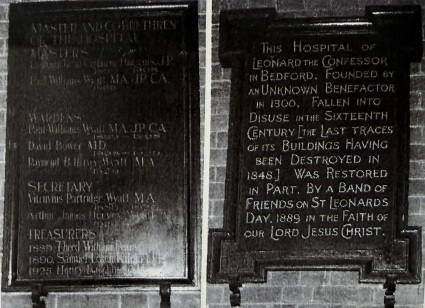 MASTER AND CO-BRETHREN
OF THE HOSPITAL
MASTERS
Paul Williams Wyatt M.A. J.P. C.A.
WARDENS
Paul Williams Wyatt M.A. J.P. C.A.
David Bower M.D.
Raymond B. Hervey Wyatt M.A.
SECRETARY
Vitruvius Partridge Wyatt M.A.
Arthur James Hervey Wyatt
TREASURERS
1889.
1890. Samuel
1925. Henry
THIS HOSPITAL OF
LEONARD THE CONFESSOR
IN BEDFORD, FOUNDED BY
AN UNKNOWN BENEFACTOR
IN 1300, FALLEN INTO
DISUSE IN THE SIXTEENTH
CENTURY [THE LAST TRACES
OF ITS BUILDINGS HAVING
BEEN DESTROYED IN
1848.] WAS RESTORED
IN PART, BY A BAND OF
FRIENDS ON ST LEONARDS
DAY, 1889 IN THE FAITH OF
OUR LORD JESUS CHRIST.